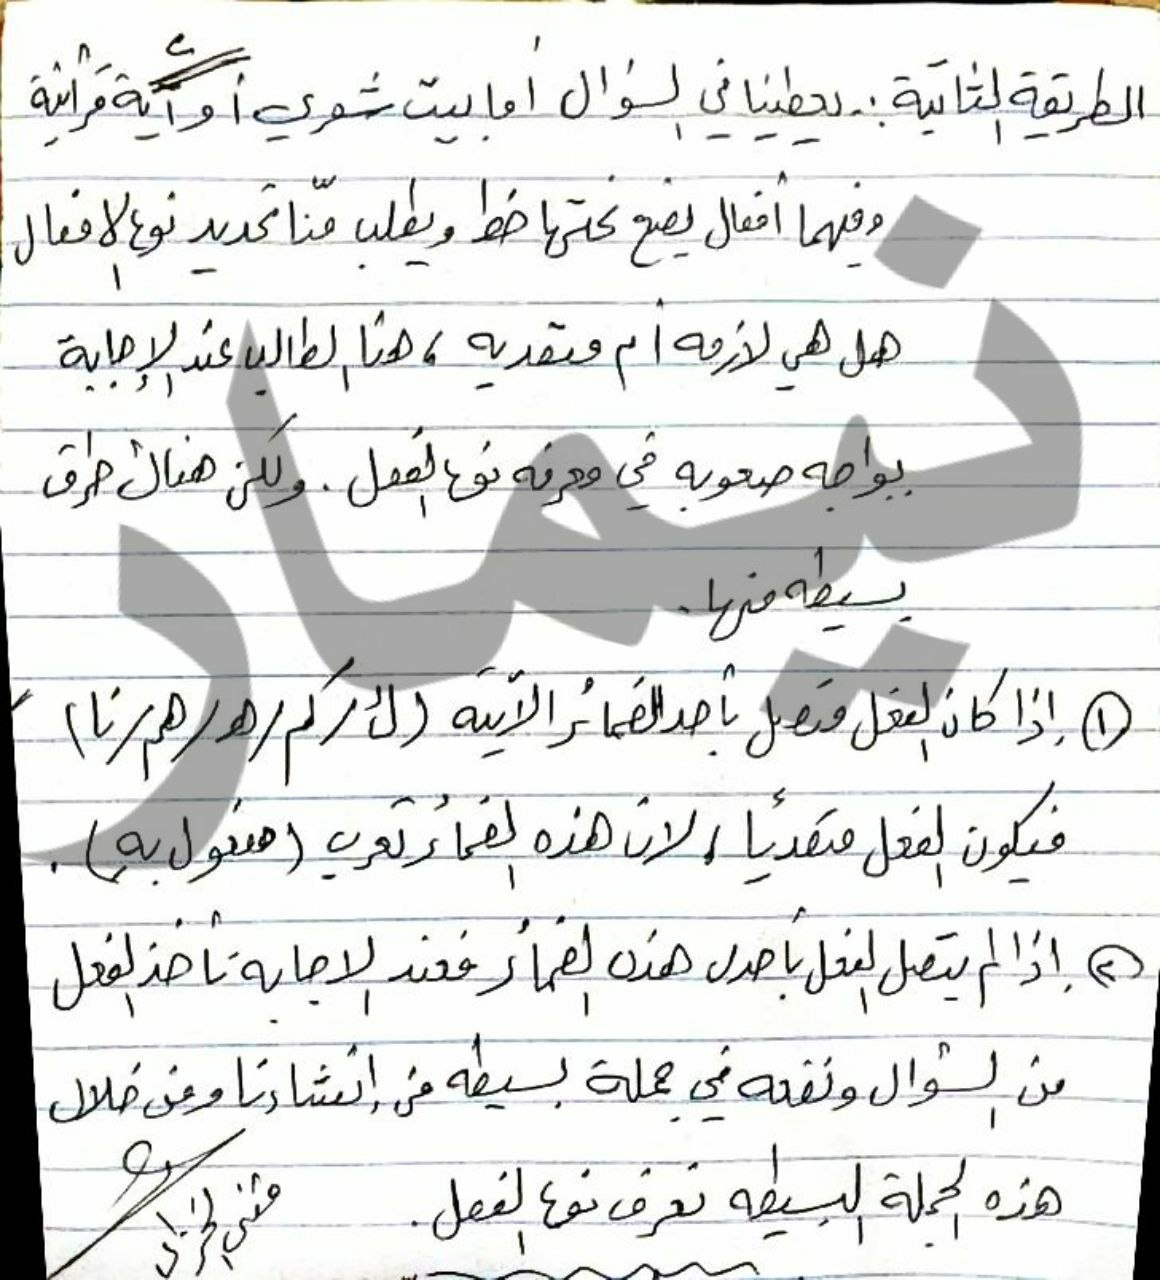 الطريقة الثانية :- يعطينا في السؤال أما بيت شعري أو آية قرآنية
وفيهما أفعال يضع تحتها خط ويطلب منّا تحديد نوع الافعال
هل هي لازمه أم متعديه ، هنا الطالب عند الإجابة
يواجه صعوبه في معرفه نوع الفعل . ولكن هناك طرق
بسيطه منها .
① إذا كان الفعل متصل بأحد الضمائر الآتيه (ك / كم / هـ / هم / نا)
فيكون الفعل متعدياً ، لان هذه الضمائر تعرب (مفعول به) .
② إذا لم يتصل الفعل بأحدى هذه الضمائر فعند الاجابه نأخذ الفعل
من السؤال ونضعه في جملة بسيطه من إنشاءنا ومن خلال
هذه الجملة البسيطه نعرف نوع الفعل .
نيمار